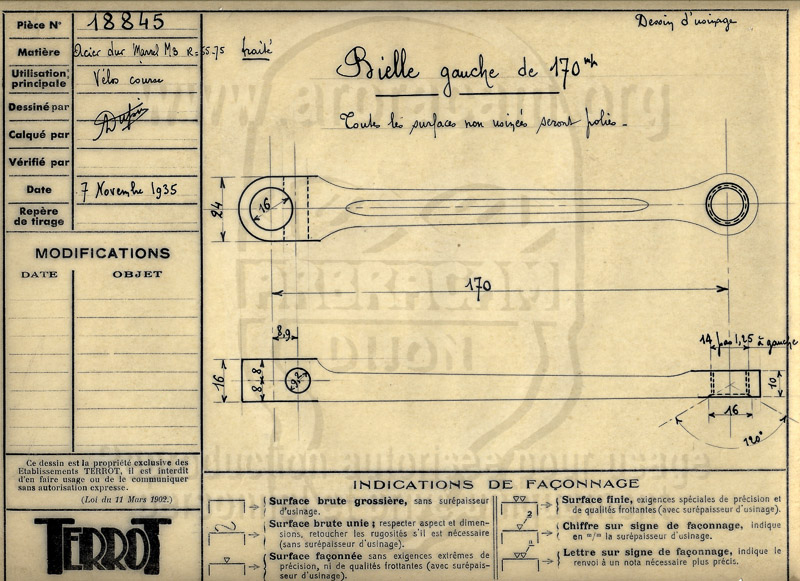 Pièce N° 18845
Matière Acier dur Marrel M3 R=55-75 traité
Utilisation principale Vélos course
Dessiné par
Calqué par
Vérifié par
Date 7 Novembre 1935
Repère de tirage
MODIFICATIONS
DATE OBJET
Ce dessin est la propriété exclusive des
Etablissements TERROT, il est interdit
d'en faire usage ou de le communiquer
sans autorisation expresse.
(Loi du 11 Mars 1902.)
TERROT
Dessin d'usinage
Bielle gauche de 170 m/m
Toutes les surfaces non usinées seront polies.
24
16
170
8,9
16
8
8
9,2
14 pas 1,25 à gauche
10
16
120°
INDICATIONS DE FAÇONNAGE
Surface brute grossière, sans surépaisseur
d'usinage.
Surface brute unie ; respecter aspect et dimen-
sions, retoucher les rugosités s'il est nécessaire
(sans surépaisseur d'usinage).
Surface façonnée sans exigences extrêmes de
précision, ni de qualités frottantes (avec surépais-
seur d'usinage).
Surface finie, exigences spéciales de précision et
de qualités frottantes (avec surépaisseur d'usinage).
Chiffre sur signe de faconnage, indique
en m/m la surépaisseur d'usinage.
Lettre sur signe de façonnage, indique le
renvoi à un nota nécessaire plus précis.